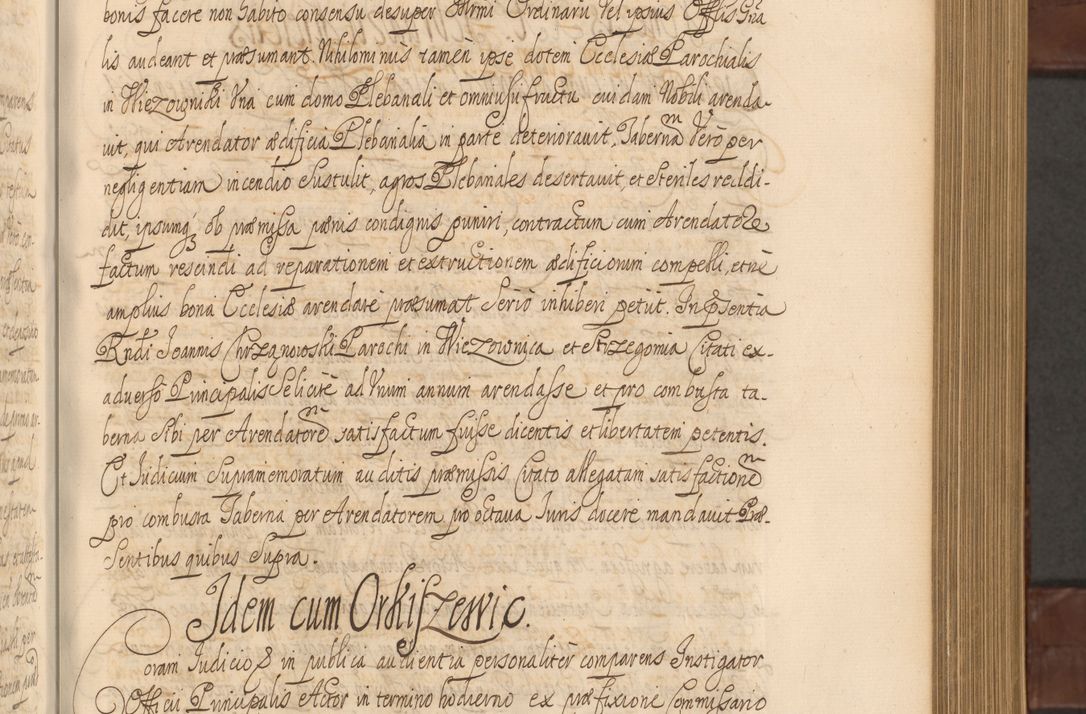 bonis facere non habito consensu desuper Illrmi Ordinarii vel ipsius Officii Gña
lis audeant et præsumant. Nihilominus tamen ipse dotem Ecclesiæ Parochialis
in Wiezowniki vna cum domo Plebanali et omni usufructu cuidam Nobili arenda-
uit, qui Arendator ædificia Plebanalia in parte deteriorauit, Tabernam Vero per
negligentiam incendio Sustulit, agros Plebanales desertauit, et steriles reddi-
dit, ipsumq, ob præmissa pænis condignis puniri, contractum cum Arendatore
factum rescindi ad reparationem et extructionem ædificiorum compelli, et ne
amplius bona Ecclesiæ arendare præsumat Serio inhiberi petiit. In præsentia
Rndi Joannis Chrzanowski Parochi in Wiezownica et Strzegomia Citati ex-
aduerso Principalis Selicite ad Vnum annum arendasse et pro combusta ta-
berna Sibi per Arendatorem satisfactum fuisse dicentis et libertatem petentis.
Et Iudicium Supramemoratum auditis præmissis Citato allegatam satisfactionem
pro combusta Taberna per Arendatorem pro octaua Iuris docere mandauit Præ-
sentibus quibus Supra.
Idem cum Orkiszewic.
Coram Iudicio & in publica audientia personaliter comparens Instigator
Officii Principalis Actor in termino hodierno ex præfixione Commissario